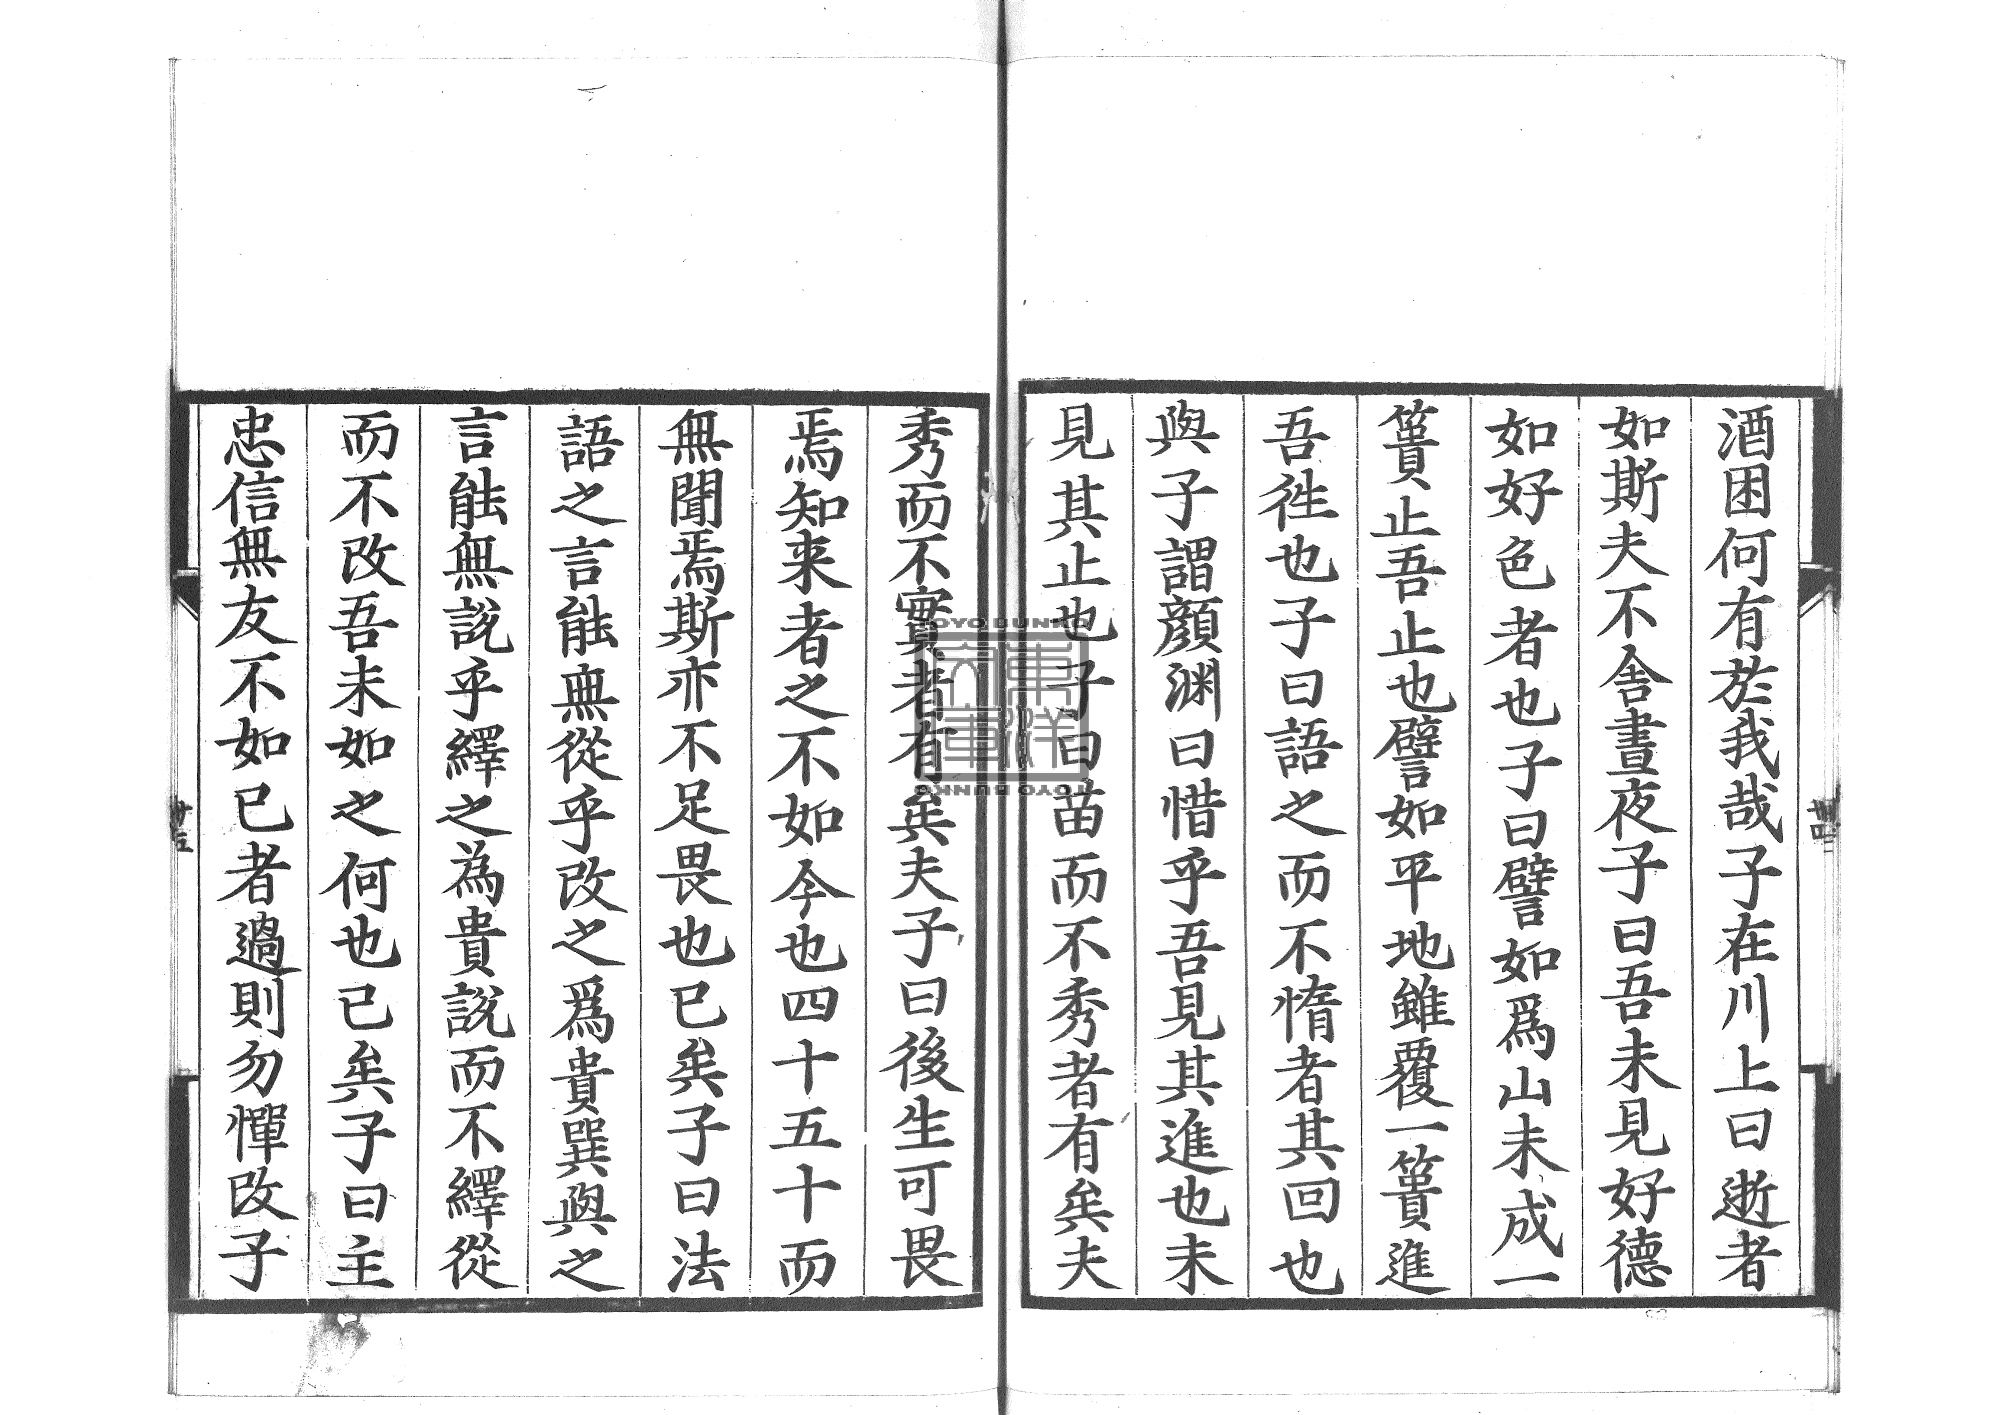 酒困何有於我哉子在川上曰逝者
如斯夫不舎晝夜子曰吾未見好德
如好色者也子曰譬如爲山未成一
簣止吾止也譬如平地雖覆一簣進
吾徃也子曰語之而不惰者其回也
與子謂顔渊曰惜乎吾見其進也未
見其止也子曰苗而不秀者有矣夫
秀而不實者有矣夫子曰後生可畏
焉知来者之不如今也四十五十而
無聞焉斯亦不足畏也已矣子曰法
語之言能無從乎改之爲貴巽與之
言能無說乎繹之為貴說而不繹從
而不改吾未如之何也已矣子曰主
忠信無友不如已者過則勿憚改子
卅四
卅五
TOYO BUNKO
東洋文庫
TOYO BUNKO